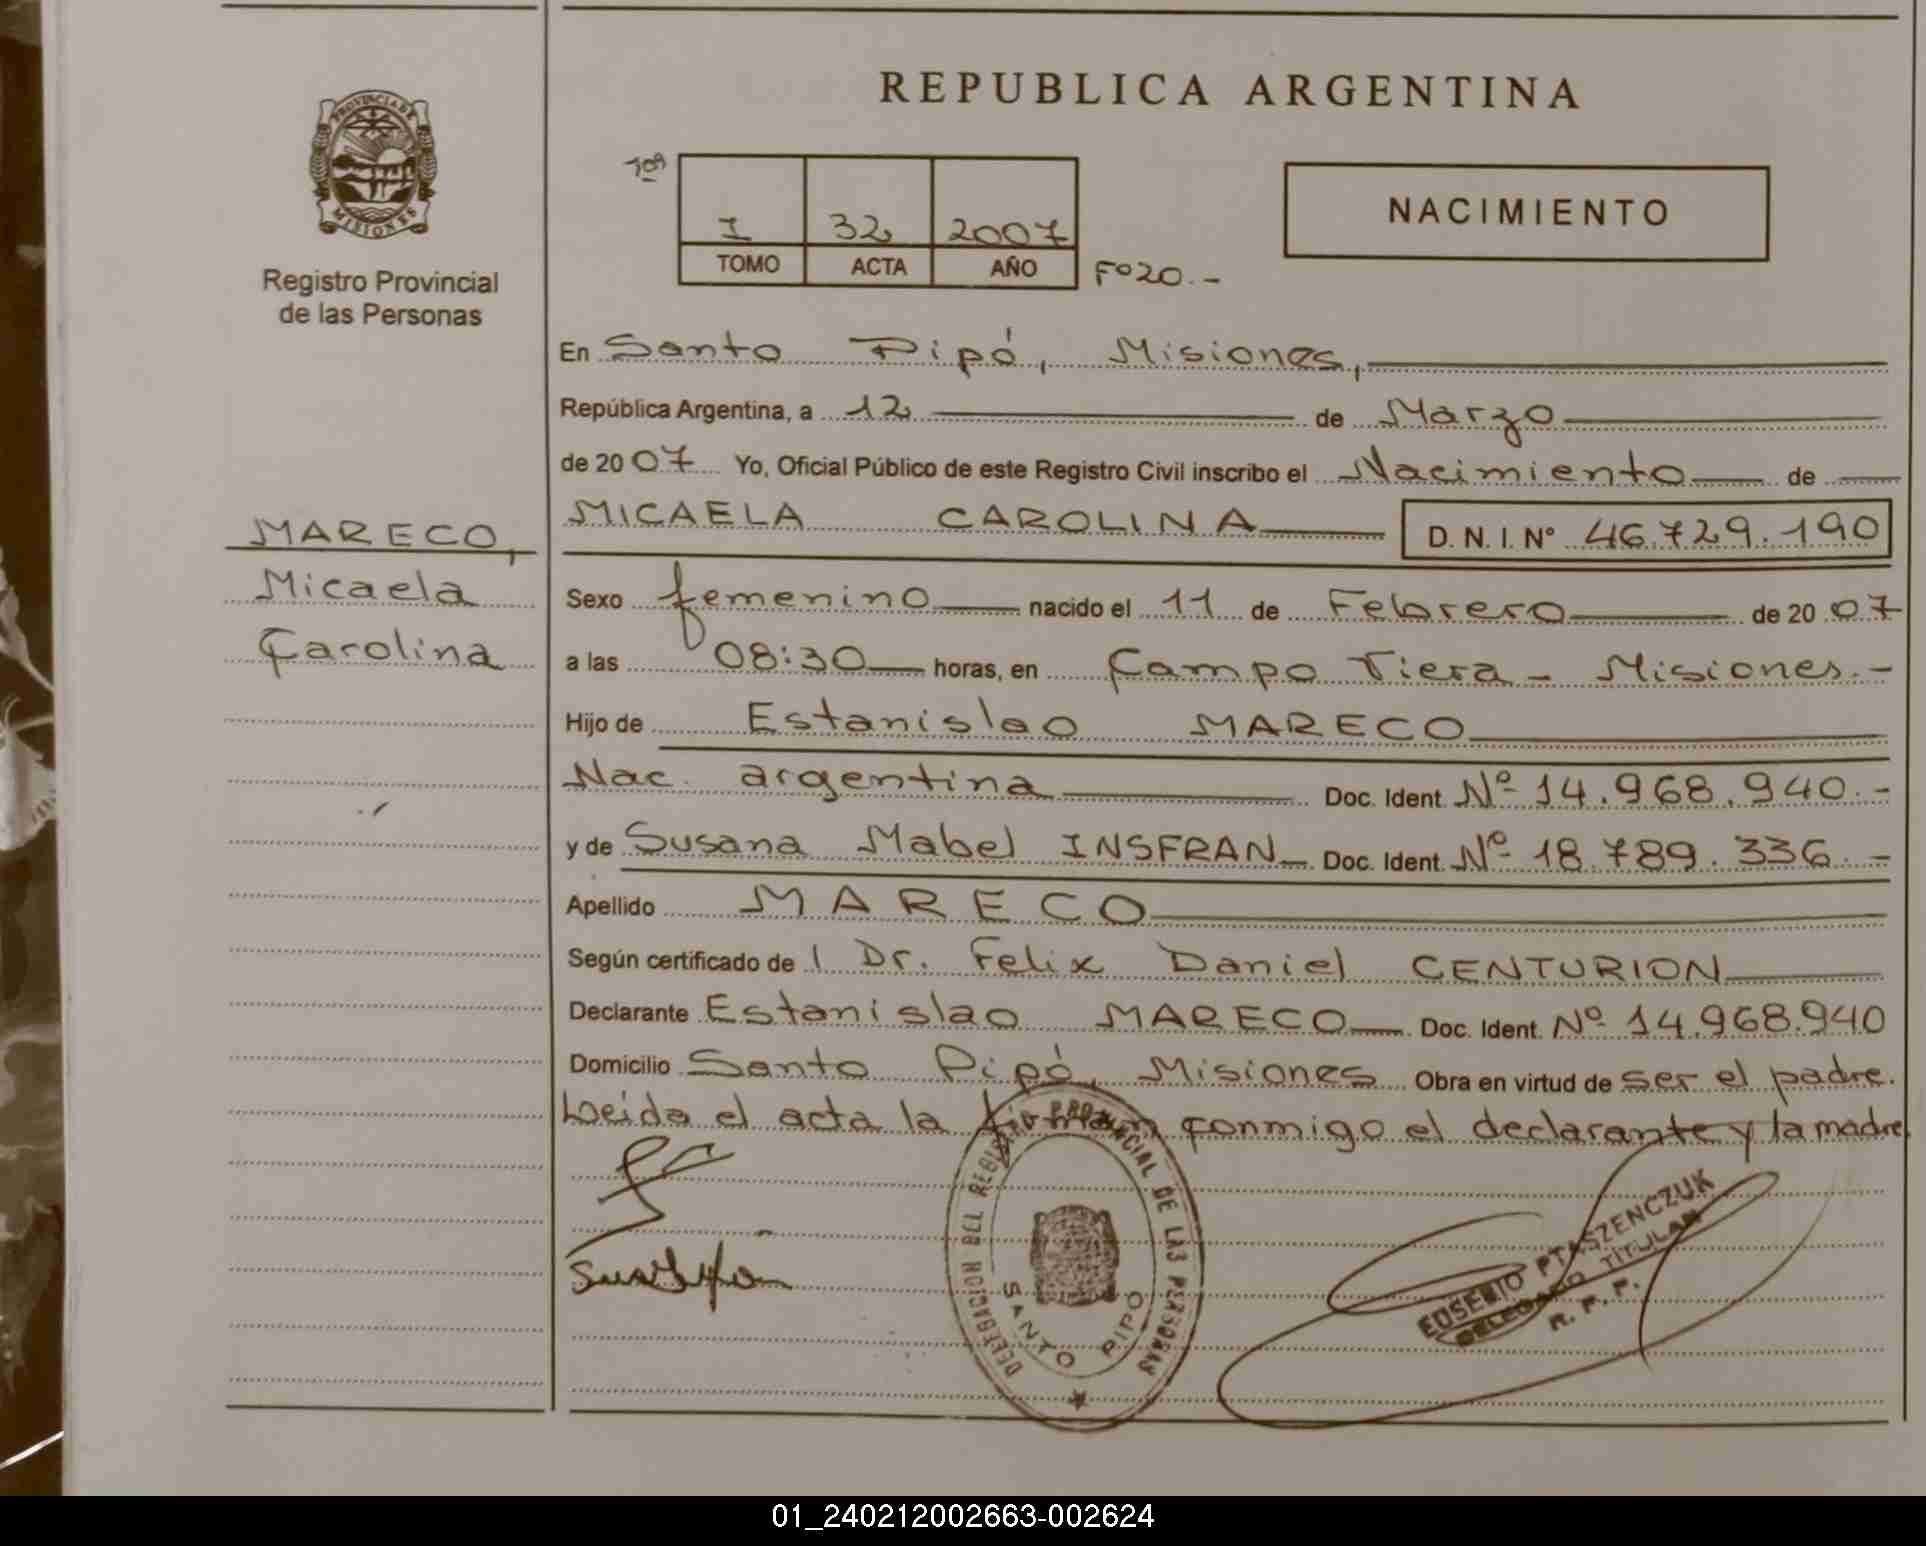 REPUBLICA ARGENTINA
PROVINCIA DE
MISIONES
Registro Provincial
de las Personas
I 32 2007
TOMO ACTA AÑO Fº20.-
NACIMIENTO
En Santo Pipó, Misiones,
República Argentina, a 12 de Marzo
de 2007 Yo, Oficial Público de este Registro Civil inscribo el Nacimiento de
MICAELA CAROLINA D. N. I. Nº 46.729.190
MARECO,
Micaela
Carolina
Sexo femenino nacido el 11 de Febrero de 2007
a las 08:30 horas, en Campo Viera - Misiones.-
Hijo de Estanislao MARECO
Nac. argentina Doc. Ident. Nº 14.968.940.-
y de Susana Mabel INSFRAN Doc. Ident. Nº 18.789.336.-
Apellido MARECO
Según certificado de l Dr. Felix Daniel CENTURION
Declarante Estanislao MARECO Doc. Ident. Nº 14.968.940
Domicilio Santo Pipó, Misiones Obra en virtud de ser el padre.
Leida el acta la firman conmigo el declarante y la madre.
DELEGACION DEL REGISTRO PROVINCIAL DE LAS PERSONAS
SANTO PIPO
EUSEBIO PTASZENCZUK
DELEGADO TITULAR
R. P. P.
01_240212002663-002624